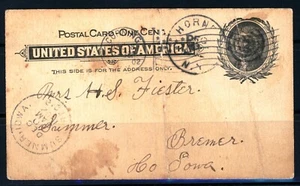 POSTAL CARD - ONE CENT
UNITED STATES OF AMERICA
THIS SIDE IS FOR THE ADDRESS ONLY.
HORN
N.Y.
Mrs H. S. Fiester
Sumner
Bremer
Co Iowa.
SUMNER, IOWA